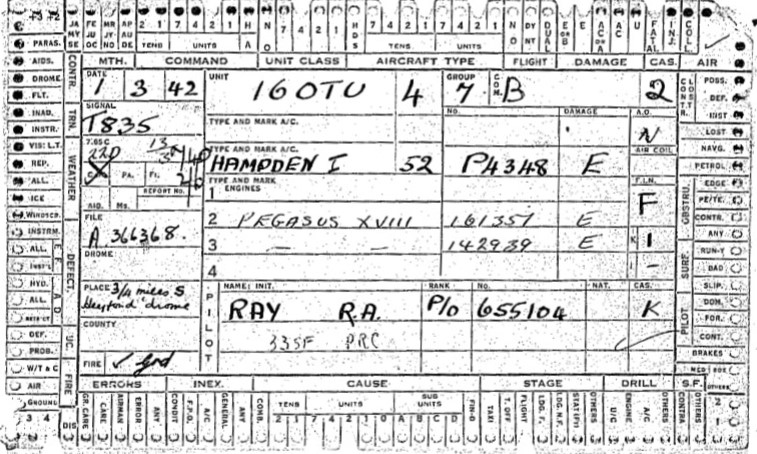 PARAS.
AIDS.
DROME.
FLT.
INAD.
INSTR.
VIS: L.T.
REP.
ALL.
ICE
WINDSCR.
INSTRM.
ALL.
INST'L
HYD.
ALL.
DEF.
PROB.
W/T & C
AIR
GROUND
3 4
JA MY SE
FE JU OC
MR JY NO
AP AU DE
2 1 7 4 2 1
TENS UNITS
H A
N O
7 4 2 1
HDS
7 4 2 1 7 4 2 1
TENS UNITS
N O
DY NT
DUAL
FATAL
INJ.
COLL.
CONTR.
TRN.
WEATHER
DEFECT
UC
FIRE
DIS
MTH. COMMAND UNIT CLASS AIRCRAFT TYPE FLIGHT DAMAGE CAS. AIR
DATE
1 3 42
UNIT
16 OTU 4
GROUP
7
COM.
B
2
SIGNAL
T835
TYPE AND MARK A/C.
NO. DAMAGE A.O.
N
765C
22D
C. PA. FI.
REPORT NO.
AID. MS.
TYPE AND MARK A/C.
HAMPDEN I 52 P4348 E
AIR COIL
TYPE AND MARK ENGINES
1
F.I.N.
F
2 PEGASUS XVIII 161357 E
3 — — 142939 E
K 1
4
I —
FILE
A.366368.
DROME
PLACE 3/4 miles S
Heyford 'drome
COUNTY
FIRE ✓ Grd
PILOT
NAME: INIT. RANK NO. NAT. CAS.
RAY R.A. P/O 655104 K
335F PRC
POSS.
DEF.
INST
LOST
NAVG.
PETROL
EDGE
PE/TE.
CONTR.
ANY
RUN-Y
BAD
SLIP.
DOM.
FOR.
CONT.
BRAKES
MED BOE
OTHERS
CONTR.
CLOST
OBSTRU.
SURF.
PILOT
ERRORS INEX. CAUSE STAGE DRILL S.F.
GR. CARE
CARE
AIRMAN
ERROR
ANY
CONDIT
F.P.O.
A/C
GENERAL
ANY
COMB.
TENS UNITS SUB UNITS
2 1 7 4 2 1 0 A B C D
FIN-D
TAXI
T. OFF
FLIGHT
LDG. F.
LDG. N.F.
STAT'RY
OTHERS
U/C
ENGINE
A/C
OTHERS
CONTRA
OTHERS
2
1